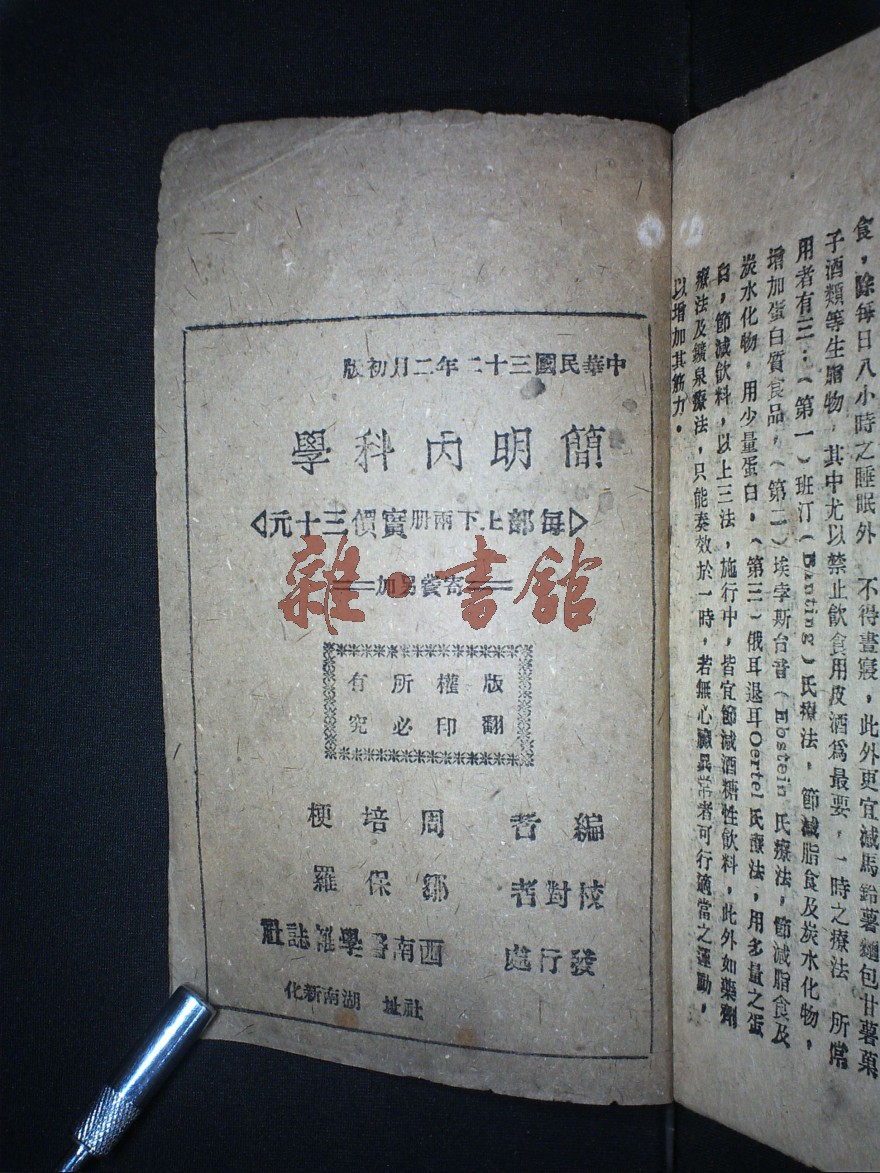 食，除每日八小時之睡眠外　不得晝寢，此外更宜減馬鈴薯麵包甘薯菓
子酒類等生脂物，其中尤以禁止飲食用皮酒爲最要，一時之療法　所常
用者有三：（第一）班汀（Banting）氏療法，節減脂食及炭水化物，
增加蛋白質食品，（第二）埃字斯台音（Ebstein 氏療法，節減脂食及
炭水化物，用少量蛋白。（第三）俄耳退耳Oertel氏療法，用多量之蛋
白，節減飲料，以上三法，施行中，皆宜節減酒糖性飲料，此外如藥劑
療法及鑛泉療法，只能奏效於一時，若無心臟異常者可行適當之運動，
以增加其筋力。
中華民國三十二年二月初版
簡明內科學
每部上下兩册實價三十元
寄費另加
版權所有
翻印必究
編者　周培梗
校對者　鄒保羅
發行處　西南醫學雜誌社
社址　湖南新化
雜·書館